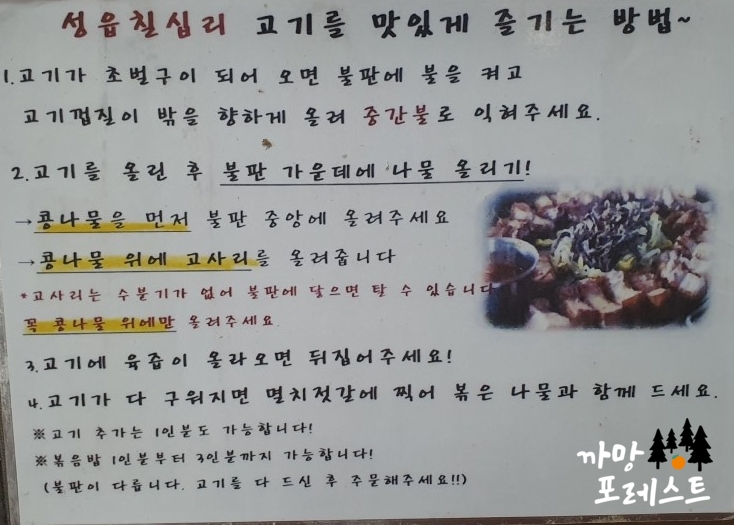 성읍칠십리 고기를 맛있게 즐기는 방법~
1.고기가 초벌구이 되어 오면 불판에 불을 켜고
고기껍질이 밖을 향하게 올려 중간불로 익혀주세요.
2.고기를 올린 후 불판 가운데에 나물 올리기!
→콩나물을 먼저 불판 중앙에 올려주세요
→콩나물 위에 고사리를 올려줍니다
*고사리는 수분기가 없어 불판에 닿으면 탈 수 있습니다
꼭 콩나물 위에만 올려주세요.
3.고기에 육즙이 올라오면 뒤집어주세요!
4.고기가 다 구워지면 멸치젓갈에 찍어 볶은 나물과 함께 드세요.
※고기 추가는 1인분도 가능합니다!
※볶음밥 1인분부터 3인분까지 가능합니다!
(불판이 다릅니다. 고기를 다 드신 후 주문해주세요!!)
까망
포레스트